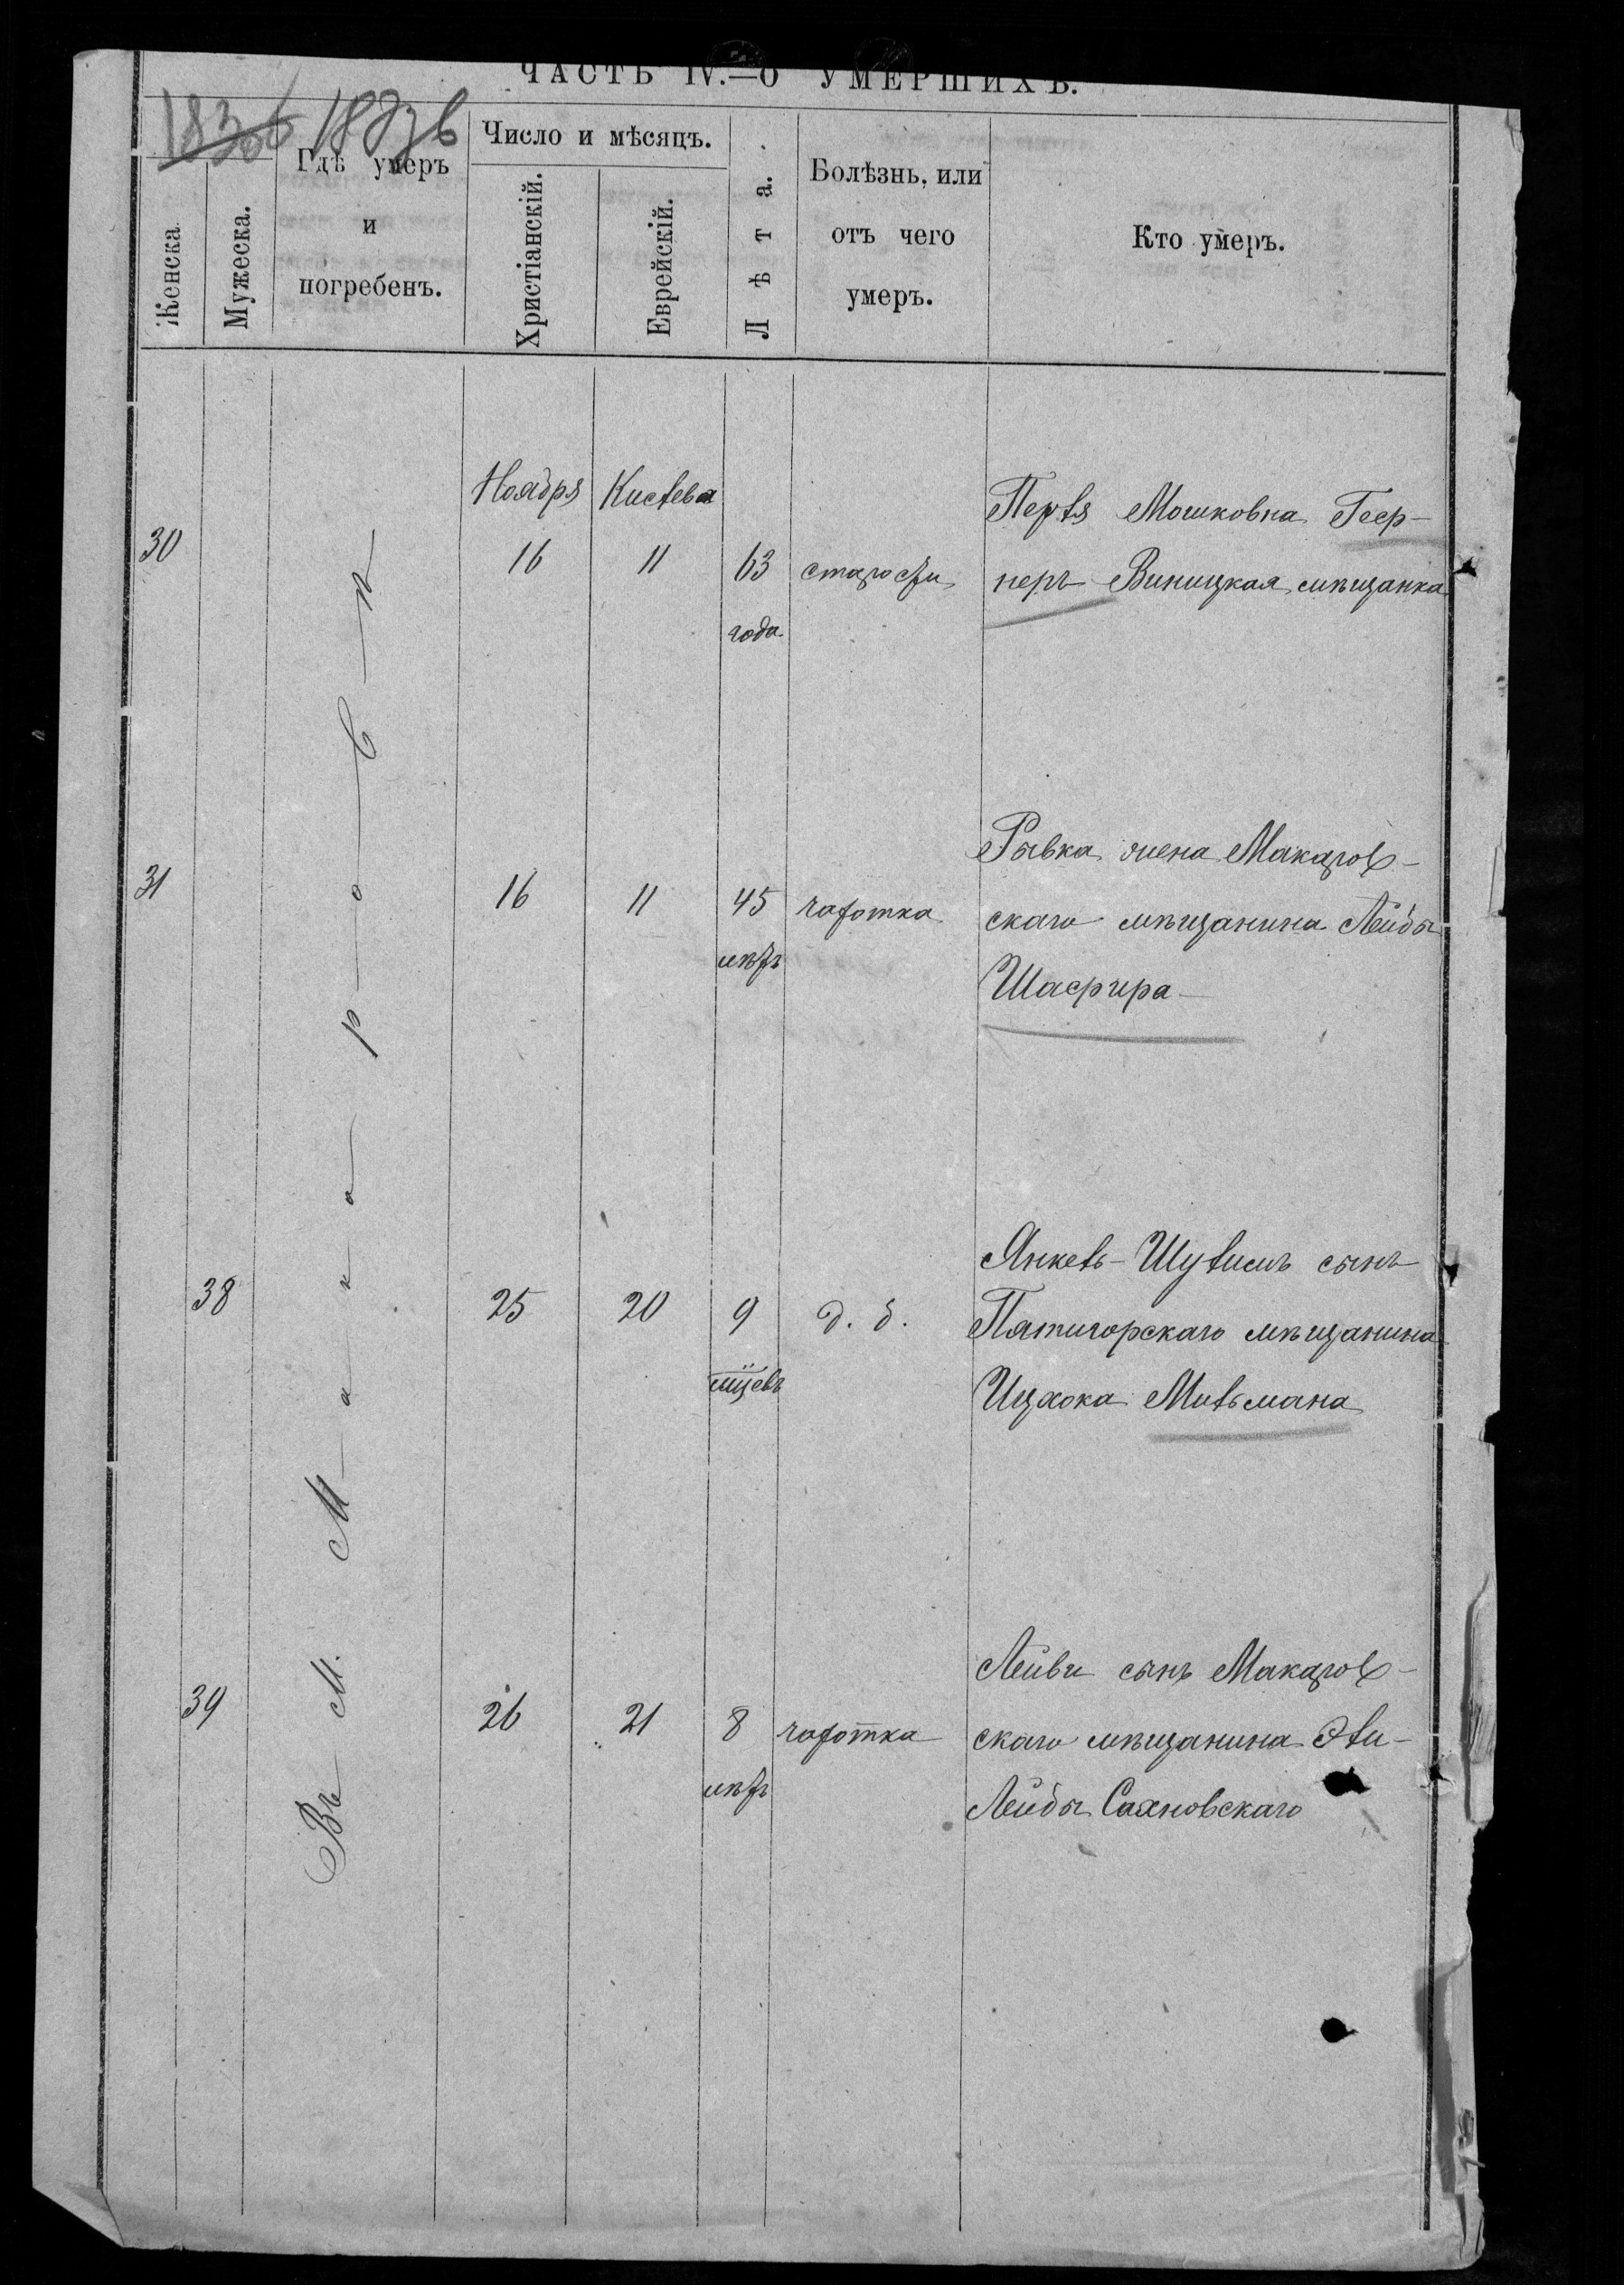 ЧАСТЬ IV.—О УМЕРШИХЪ.
Женска
Мужеска.
Гдѣ умеръ
и
погребенъ.
Число и мѣсяцъ.
Христіанскій.
Еврейскій.
Лѣта.
Болѣзнь, или
отъ чего
умеръ.
Кто умеръ.
Въ М. Макаровѣ
Ноября Кислева
30 16 11 63 года старости
Перля Мошковна Гер-
неръ Виницкая мѣщанка
31 16 11 45 лѣтъ чахотка
Рывка жена Макаров-
скаго мѣщанина Лейбы
Шафира
38 25 20 9 мцевъ д. б.
Янкель-Шулимъ сынъ
Пятигорскаго мѣщанина
Ицхока Мильмана
39 26 21 8 лѣтъ чахотка
Лейви сынъ Макаров-
скаго мѣщанина Эли-
Лейбы Сахновскаго